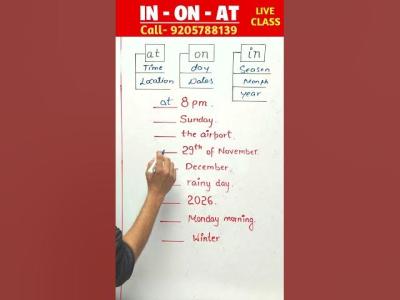 IN - ON - AT
LIVE CLASS
Call- 9205788139
at on in
Time day Season
Location Dates Month
year
at 8 pm.
Sunday.
the airport.
29th of November.
December.
rainy day.
2026.
Monday morning.
Winter